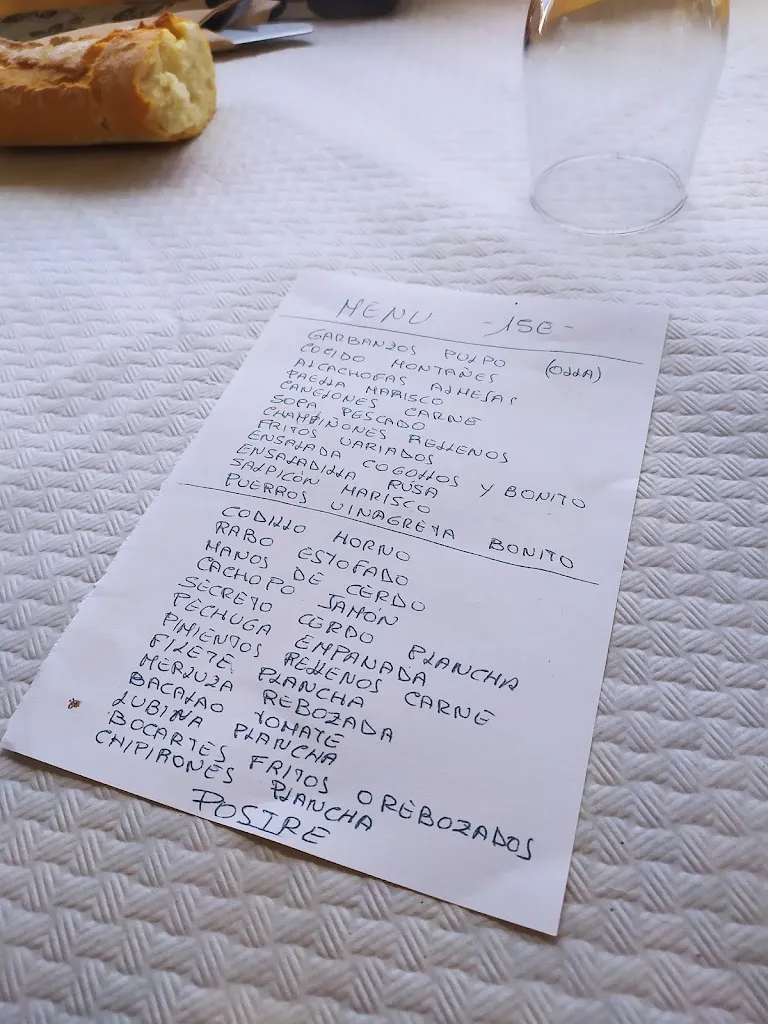 MENU -15E-
GARBANZOS PULPO (OLLA)
COCIDO MONTAÑES
ALCACHOFAS ALMEJAS
PAELLA MARISCO
CANELONES CARNE
SOPA PESCADO
CHAMPIÑONES RELLENOS
FRITOS VARIADOS
ENSALADA COGOLLOS Y BONITO
ENSALADILLA RUSA
SALPICÓN MARISCO
PUERROS VINAGRETA BONITO
CODILLO HORNO
RABO ESTOFADO
MANOS DE CERDO
CACHOPO JAMÓN
SECRETO CERDO PLANCHA
PECHUGA EMPANADA
PIMIENTOS RELLENOS CARNE
FILETE PLANCHA
MERLUZA REBOZADA
BACALAO TOMATE
LUBINA PLANCHA
BOCARTES FRITOS O REBOZADOS
CHIPIRONES PLANCHA
POSTRE